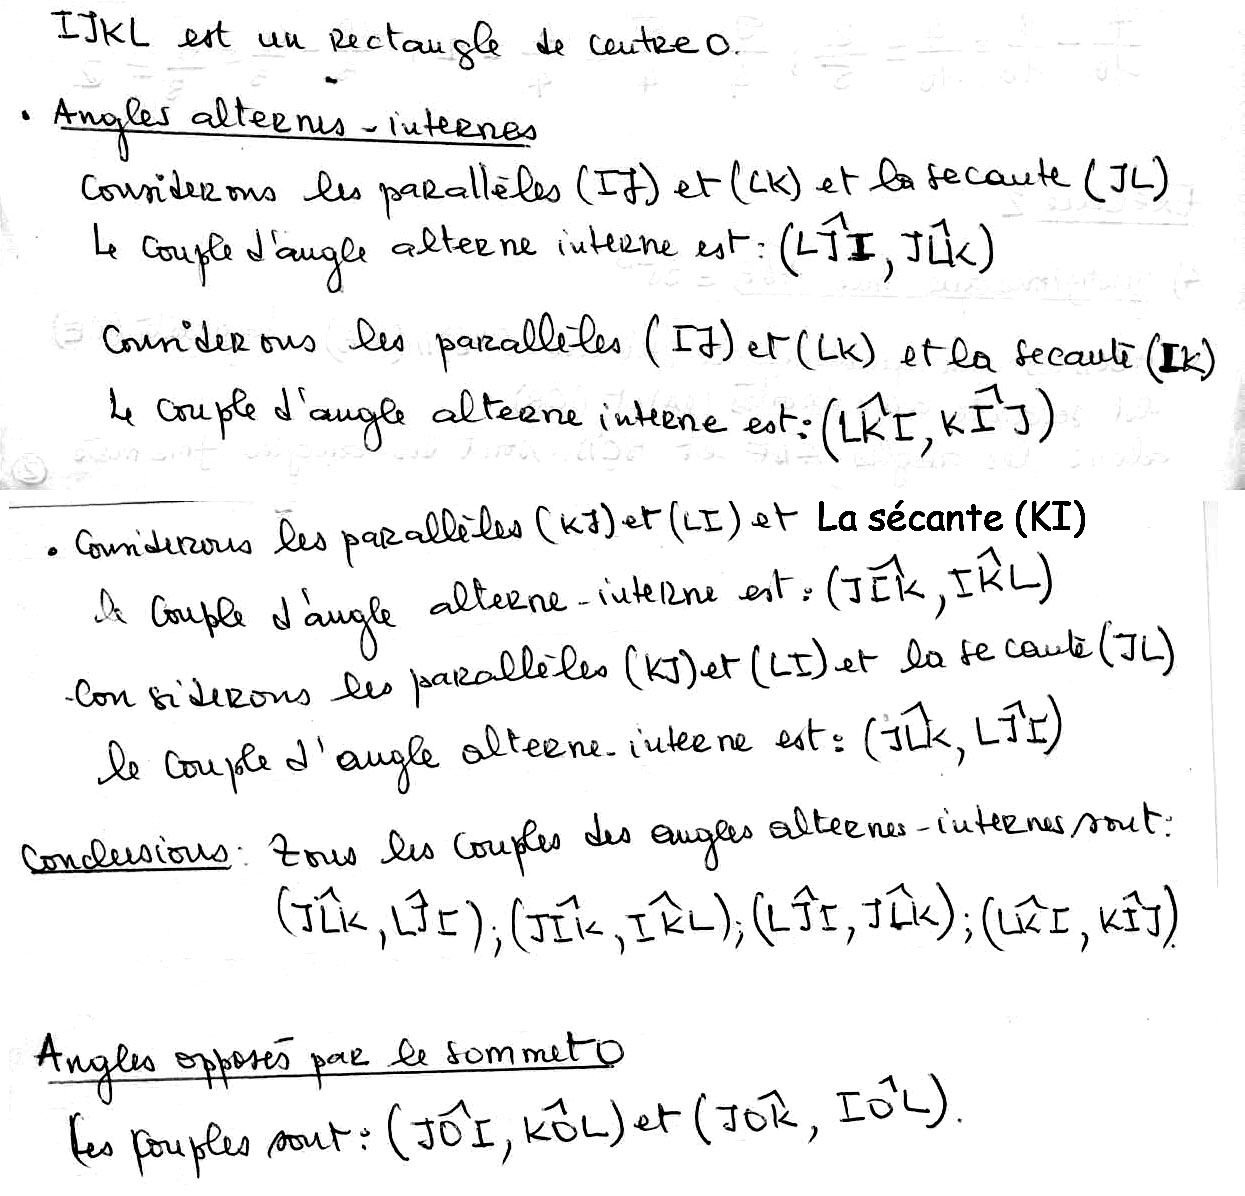 IJKL est un rectangle de centre O.
• Angles alternes-internes
Considerons les parallèles (IJ) et (LK) et la secante (JL)
Le couple d'angle alterne interne est : (LĴI, JL̂K)
Considerons les parallèles (IJ) et (LK) et la secante (IK)
Le couple d'angle alterne interne est : (LK̂I, KÎJ)
• Considerons les parallèles (KJ) et (LI) et La sécante (KI)
le couple d'angle alterne-interne est : (JÎK, IK̂L)
- Considerons les parallèles (KJ) et (LI) et la secante (JL)
le couple d'angle alterne-interne est : (JL̂K, LĴI)
Conclusions : tous les couples des angles alternes-internes sont :
(JL̂K, LĴI) ; (JÎK, IK̂L) ; (LĴI, JL̂K) ; (LK̂I, KÎJ)
Angles opposés par le sommet O
Les couples sont : (JÔI, KÔL) et (JÔK, IÔL).